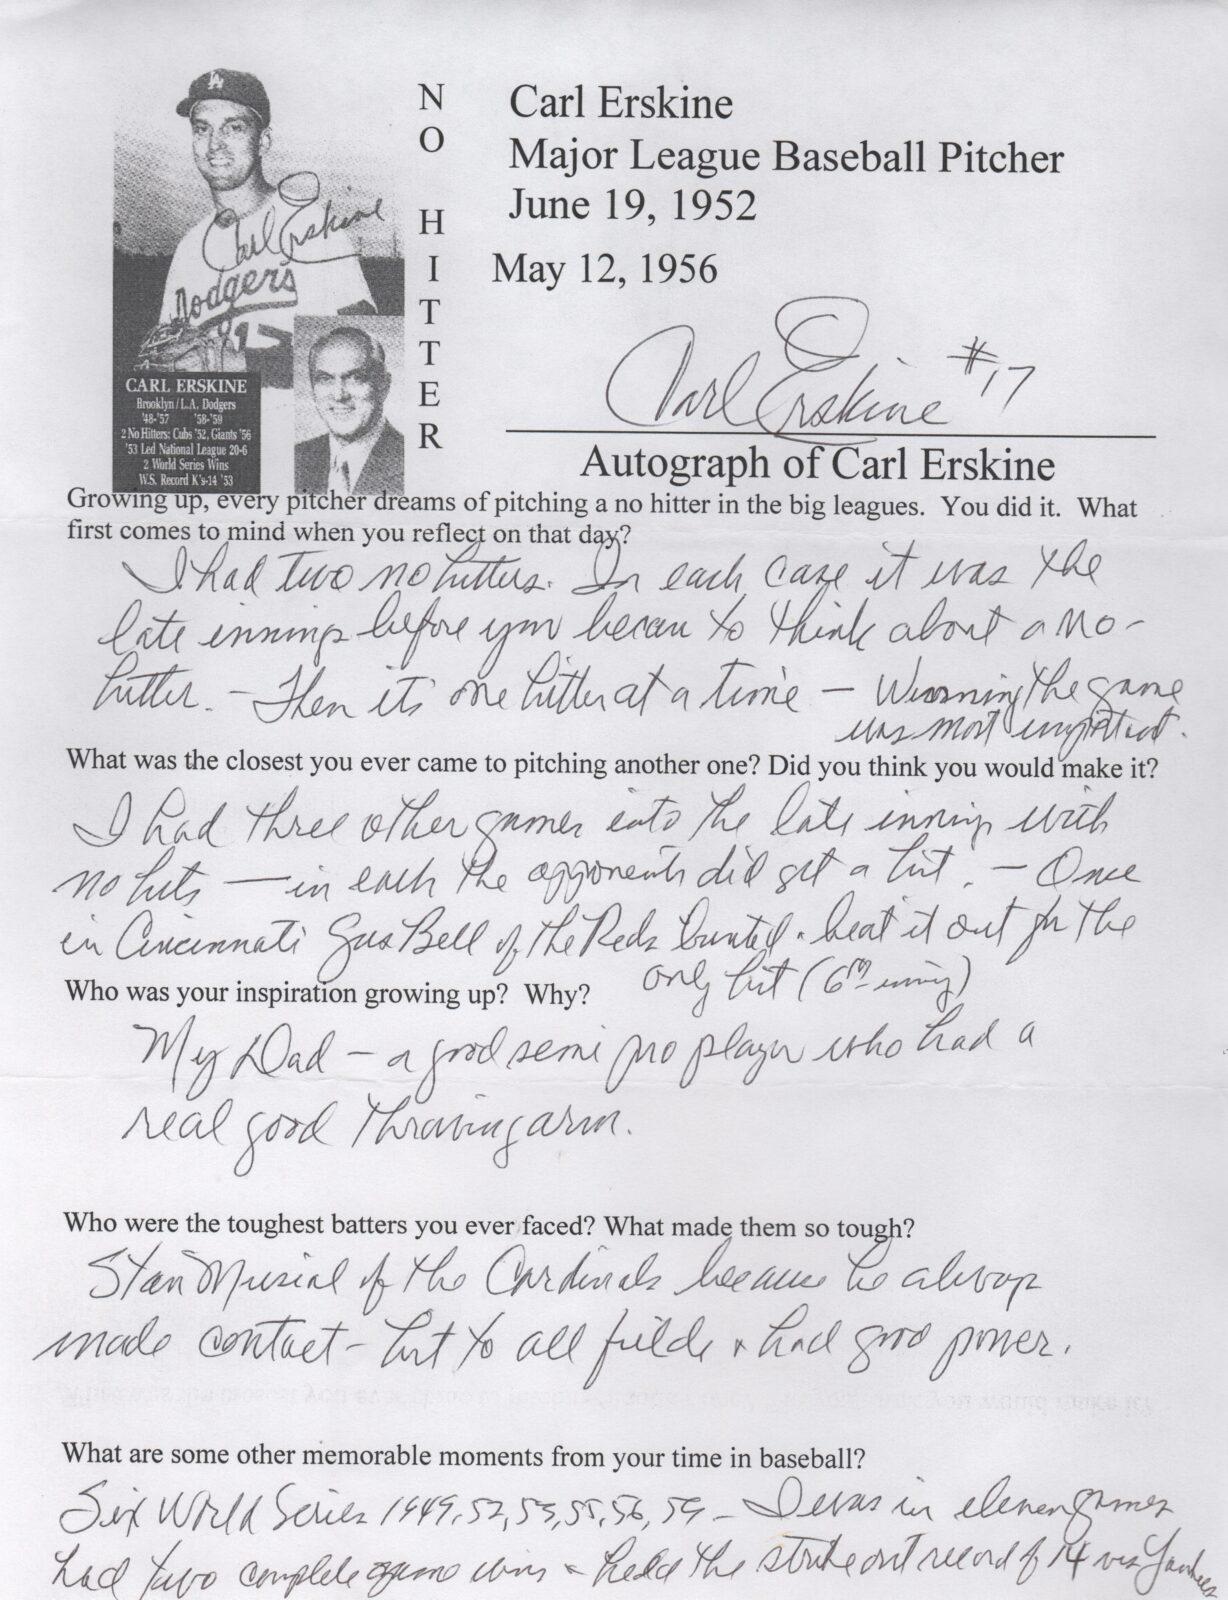 NO HITTER
Carl Erskine
Major League Baseball Pitcher
June 19, 1952
May 12, 1956
LA
Carl Erskine
Dodgers
17
CARL ERSKINE
Brooklyn/L.A. Dodgers
'48-'57 '58-'59
2 No Hitters: Cubs '52, Giants '56
'53 Led National League 20-6
2 World Series Wins
W.S. Record K's-14 '53
Carl Erskine #17
Autograph of Carl Erskine
Growing up, every pitcher dreams of pitching a no hitter in the big leagues. You did it. What
first comes to mind when you reflect on that day?
I had two no hitters. In each case it was the
late innings before you began to think about a no-
hitter. - Then it's one hitter at a time - Winning the game
was most important.
What was the closest you ever came to pitching another one? Did you think you would make it?
I had three other games into the late innings with
no hits - in each the opponents did get a hit. - Once
in Cincinnati Gus Bell of the Reds bunted & beat it out for the
only hit (6th inning)
Who was your inspiration growing up? Why?
My Dad - a good semi pro player who had a
real good throwing arm.
Who were the toughest batters you ever faced? What made them so tough?
Stan Musial of the Cardinals because he always
made contact - hit to all fields & had good power.
What are some other memorable moments from your time in baseball?
Six World Series 1949, 52, 53, 55, 56, 59 - I was in eleven games
had two complete game wins & held the strike out record of 14 vs Yankees